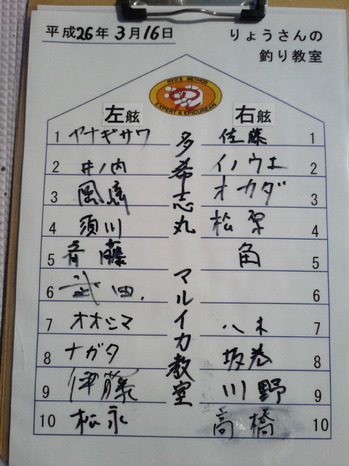 平成26年3月16日
りょうさんの
釣り教室
RYO'S METHOD
EXPERT & EPICUREAN
左舷
右舷
多希志丸 マルイカ教室
1 ヤナギサワ 佐藤 1
2 井ノ内 イノウエ 2
3 風 オカダ 3
4 須川 松 4
5 斉藤 角 5
6 武田 6
7 オオシマ 八木 7
8 ナガタ 坂巻 8
9 伊藤 川野 9
10 松永 高橋 10